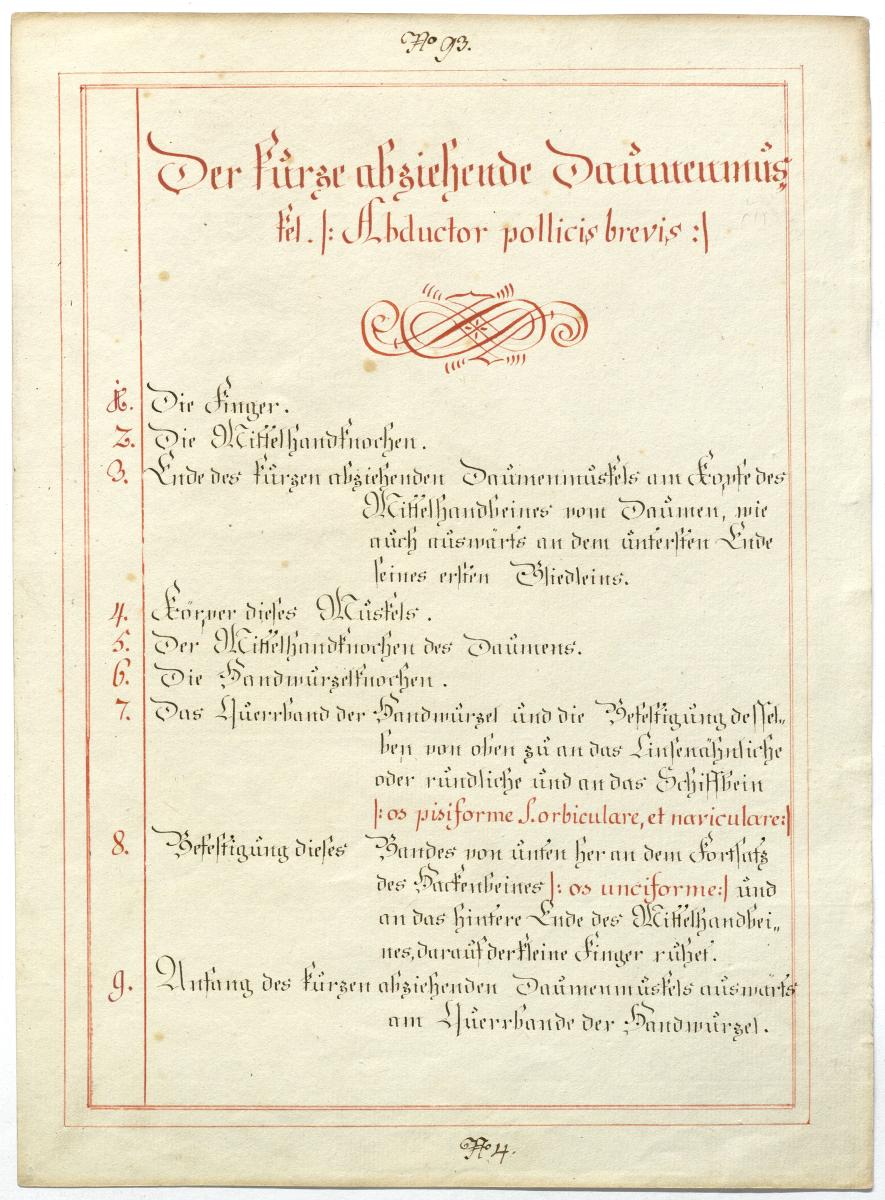 No 93.
Der kurze abziehende Daumenmus„
kel. |: Abductor pollicis brevis :|
1. Die Finger.
2. Die Mittelhandknochen.
3. Ende des kurzen abziehenden Daumenmuskels am Kopfe des
Mittelhandbeines vom Daumen, wie
auch auswärts an dem untersten Ende
seines ersten Gliedleins.
4. Körper dieses Muskels.
5. Der Mittelhandknochen des Daumens.
6. Die Handwurzelknochen.
7. Das Querrband der Handwurzel und die Befestigung dessel„
ben von oben zu an das Linsenähnliche
oder rundliche und an das Schiffbein
|: os pisiforme S. orbiculare, et naviculare :|
8. Befestigung dieses Bandes von unten her an dem Fortsatz
des Hackenbeines |: os unciforme :| und
an das hintere Ende des Mittelhandbei„
nes, darauf der kleine Finger ruhet.
9. Anfang des kurzen abziehenden Daumenmuskels auswärts
am Querrbande der Handwurzel.
No 4.